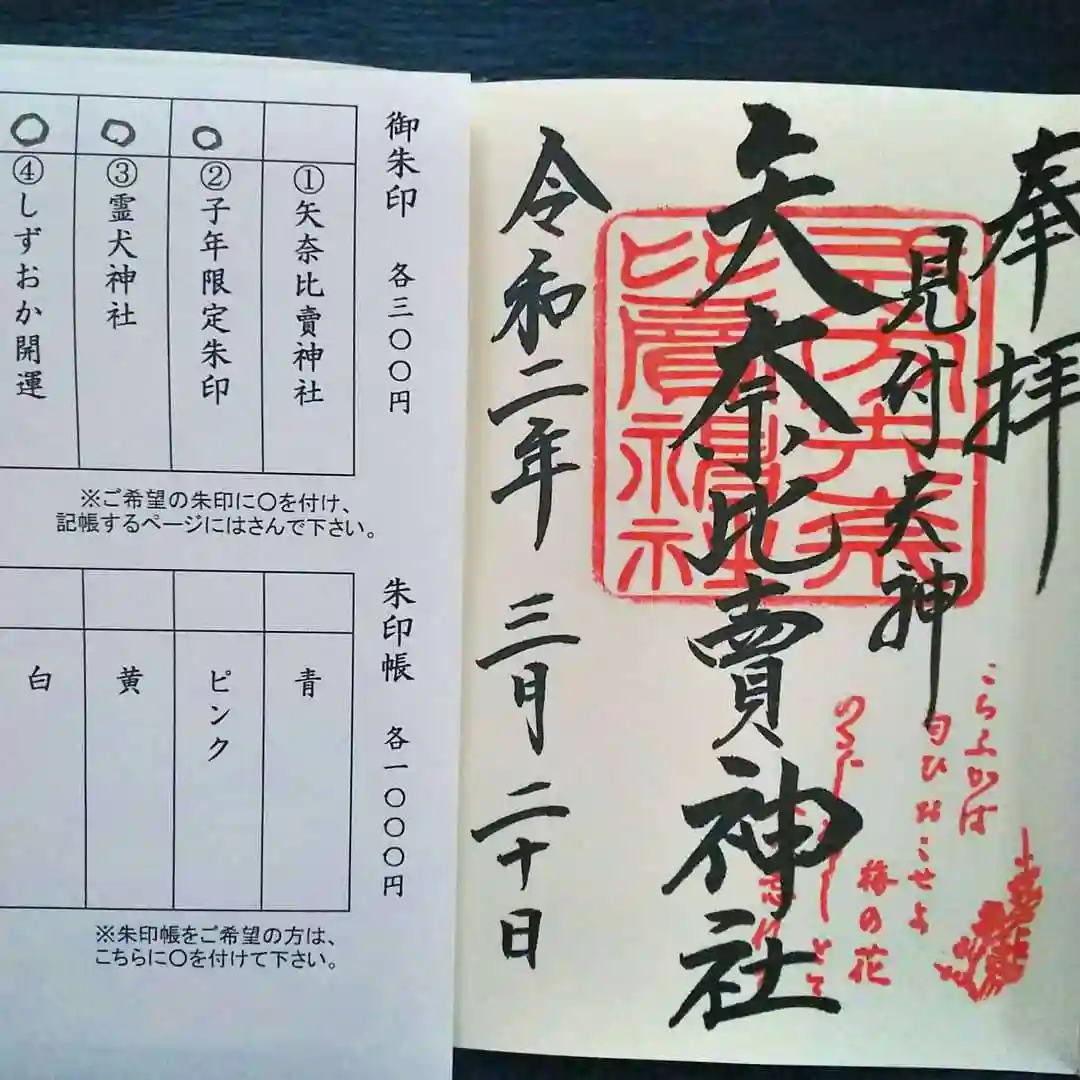 奉拝
見付天神
矢奈比賣神社
令和二年 三月二十日
こちふかば
匂ひおこせよ
梅の花
御朱印 各三〇〇円
①矢奈比賣神社
〇
②子年限定朱印
〇
③霊犬神社
〇
④しずおか開運
※ご希望の朱印に〇を付け、
記帳するページにはさんで下さい。
朱印帳 各一〇〇〇円
青
ピンク
黄
白
※朱印帳をご希望の方は、
こちらに〇を付けて下さい。